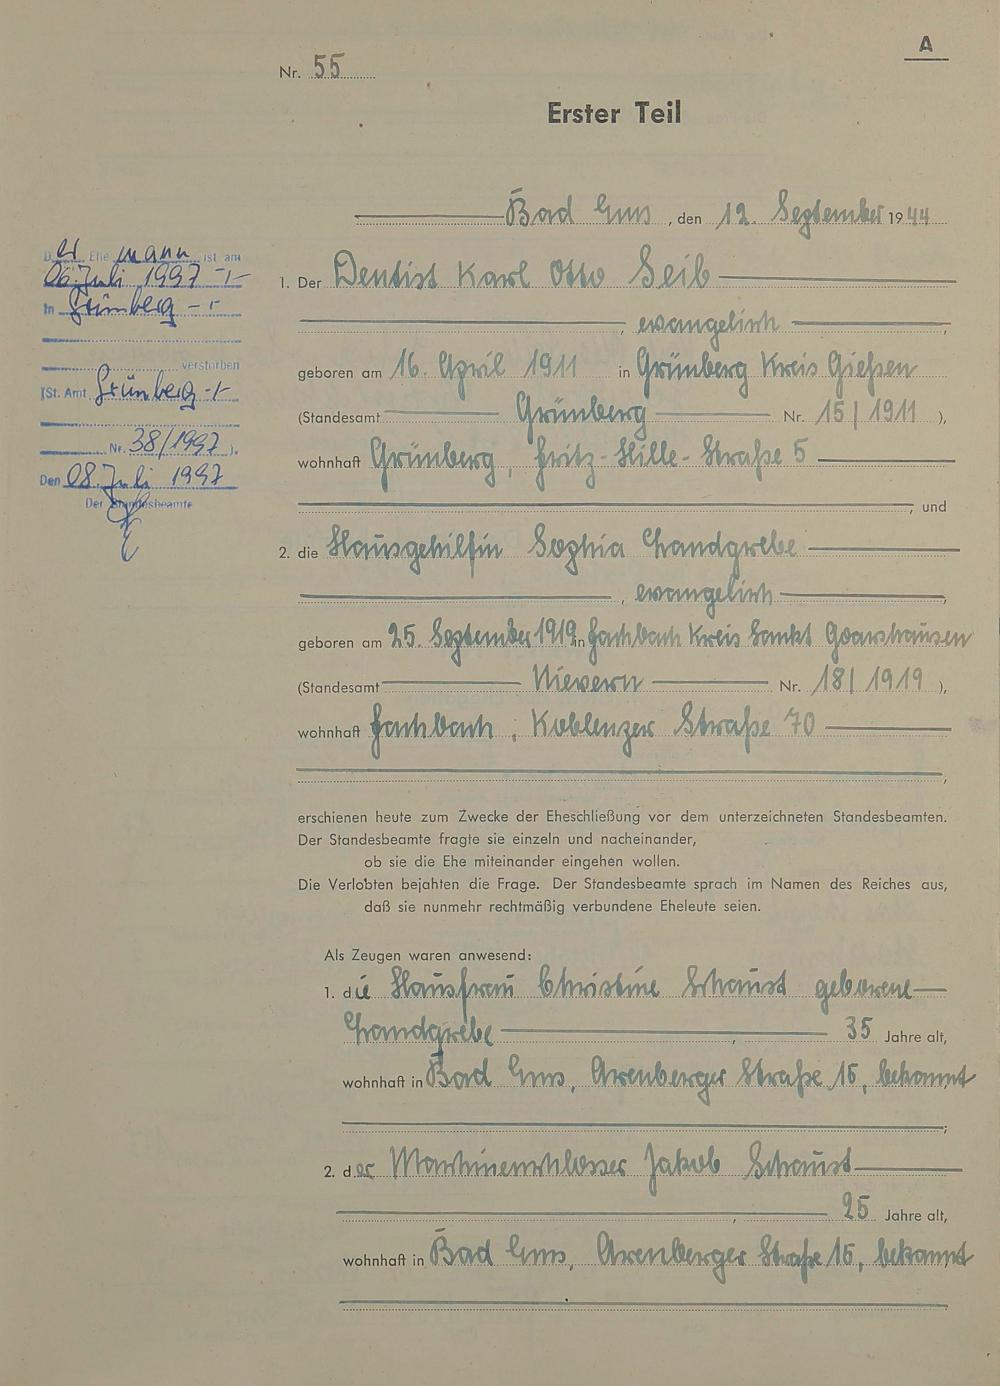 A
Nr. 55
Erster Teil
Bad Ems, den 12. September 1944
Der Ehemann ist am
06. Juli 1997 -+-
in Grünberg -+-
verstorben
(St. Amt Grünberg -+-
Nr. 38/1997).
Den 08. Juli 1997
Der Standesbeamte
1. Der Dentist Karl Otto Seib
, evangelisch ,
geboren am 16. April 1911 in Grünberg Kreis Gießen
(Standesamt Grünberg Nr. 15/1911 ),
wohnhaft Grünberg, Fritz-Hille-Straße 5
, und
2. die Hausgehilfin Sophia Landgrebe
, evangelisch ,
geboren am 25. September 1919 in Fachbach Kreis Sankt Goarshausen
(Standesamt Nievern Nr. 18/1919 ),
wohnhaft Fachbach, Koblenzer Straße 70
,
erschienen heute zum Zwecke der Eheschließung vor dem unterzeichneten Standesbeamten.
Der Standesbeamte fragte sie einzeln und nacheinander,
ob sie die Ehe miteinander eingehen wollen.
Die Verlobten bejahten die Frage. Der Standesbeamte sprach im Namen des Reiches aus,
daß sie nunmehr rechtmäßig verbundene Eheleute seien.
Als Zeugen waren anwesend:
1. die Hausfrau Christine Schaust geborene
Landgrebe , 35 Jahre alt,
wohnhaft in Bad Ems, Arenberger Straße 15, bekannt
;
2. der Maschinenschlosser Jakob Schaust
, 25 Jahre alt,
wohnhaft in Bad Ems, Arenberger Straße 15, bekannt
.